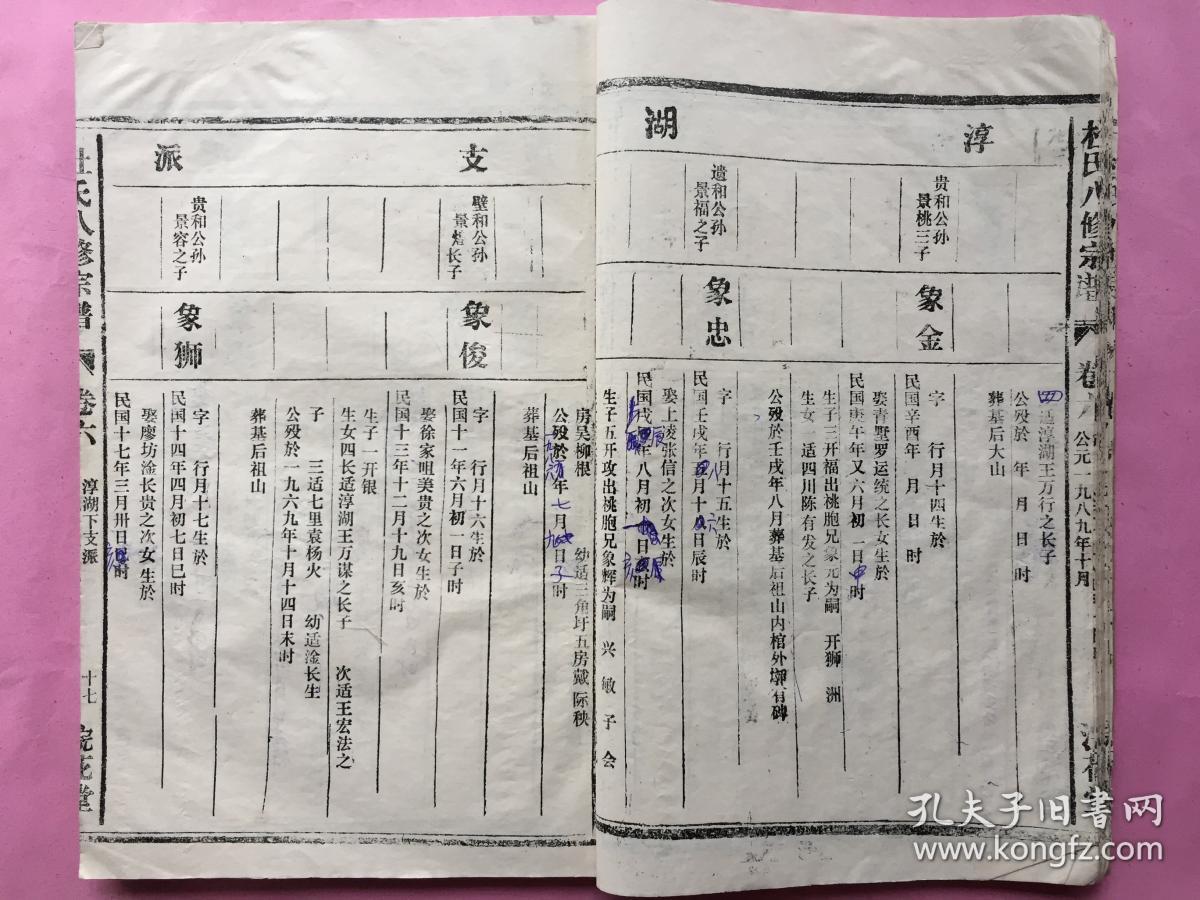 杜氏八修宗谱
卷六
公元一九八九年十月
淳
湖
贵和公孙
景桃三子
遗和公孙
景福之子
象金
象忠
四适淳湖王万行之长子
公殁於 年 月 日时
葬基后大山
字 行月十四生於
民国辛酉年 月 日 时
娶青墅罗运统之长女生於
民国庚午年又六月初一日申时
生子三开福出桃胞兄象元为嗣 开狮 洲
生女 适四川陈有发之长子
公殁於壬戌年八月葬基后祖山内棺外墎有碑
字 行月十五生於
民国壬戌年 月十 日辰时
娶上凌张信之次女生於
民国 年八月初 日 时
生子五开攻出桃胞兄象辉为嗣 兴 敏 予 会
支
派
璧和公孙
景 长子
贵和公孙
景容之子
象俊
象狮
房吴柳根 幼适三角圩五房戴际秧
公殁於 年七月 日子时
葬基后祖山
字 行月十六生於
民国十一年六月初一日子时
娶徐家咀美贵之次女生於
民国十三年十二月十九日亥时
生子一开银
生女四长适淳湖王万谋之长子 次适王宏法之
子 三适七里袁杨火 幼适淦长生
公殁於一九六九年十月十四日未时
葬基后祖山
字 行月十七生於
民国十四年四月初七日巳时
娶廖坊淦长贵之次女生於
民国十七年三月卅日 时
杜氏八修宗谱
卷六
淳湖下支派
十七
浣花堂
孔夫子旧書网
www.kongfz.com